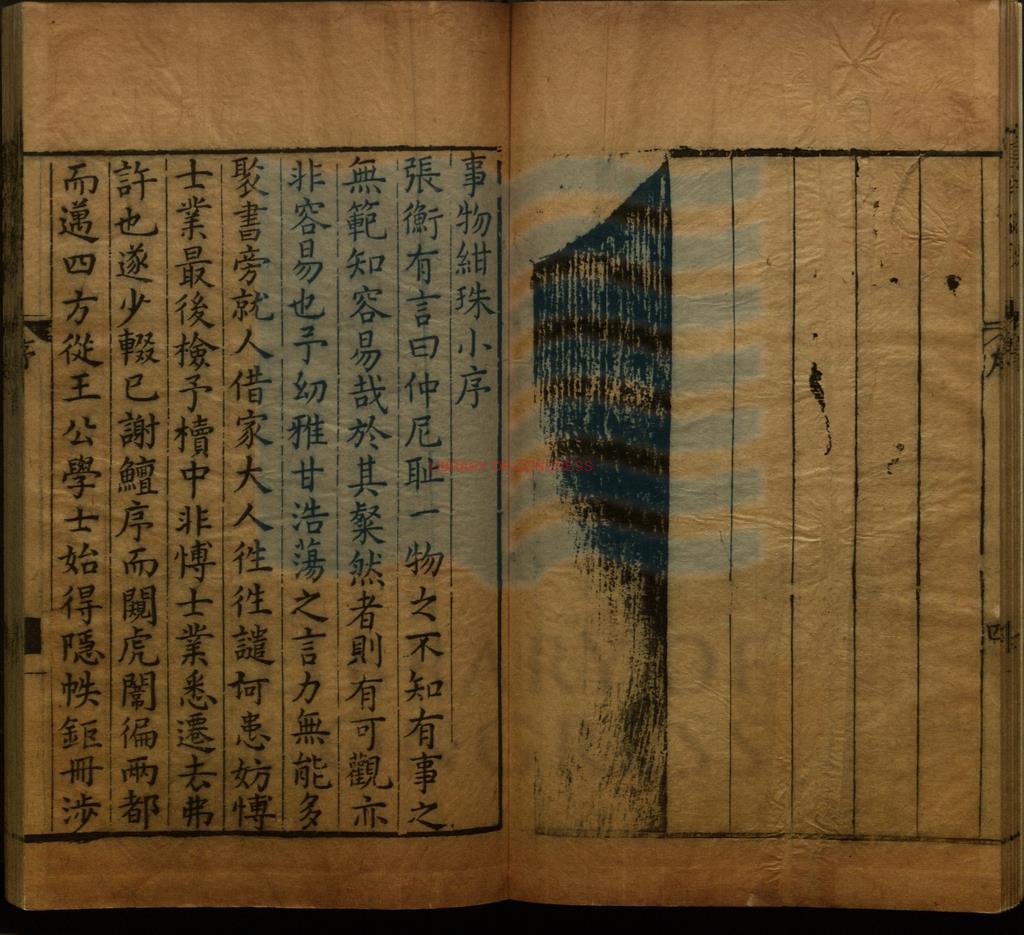 事物紺珠小序
張衡有言曰仲尼耻一物之不知有事之
無範知容易哉於其粲然者則有可觀亦
非容易也予幼雅甘浩蕩之言力無能多
聚書旁就人借家大人徃徃譴何患妨愽
士業最後檢予櫝中非愽士業悉遷去弗
許也遂少輟已謝鱣序而闚虎闈徧兩都
而邁四方從王公學士始得隱帙鉅冊涉
序
四
LIBRARY OF CONGRESS